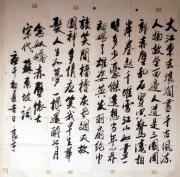 大江東去浪淘盡千古風流
人物故壘西邊人道是三國周
郎赤壁亂石穿空驚濤拍
岸卷起千堆雪江山如畫一
時多少豪傑遙想公瑾當年小喬
初嫁了雄姿英發羽扇綸巾
談笑間檣櫓灰飛煙滅故
國神遊多情應笑我早生華
髮人生如夢一樽還酹江月
念奴嬌赤壁懷古
宋代蘇東坡詞